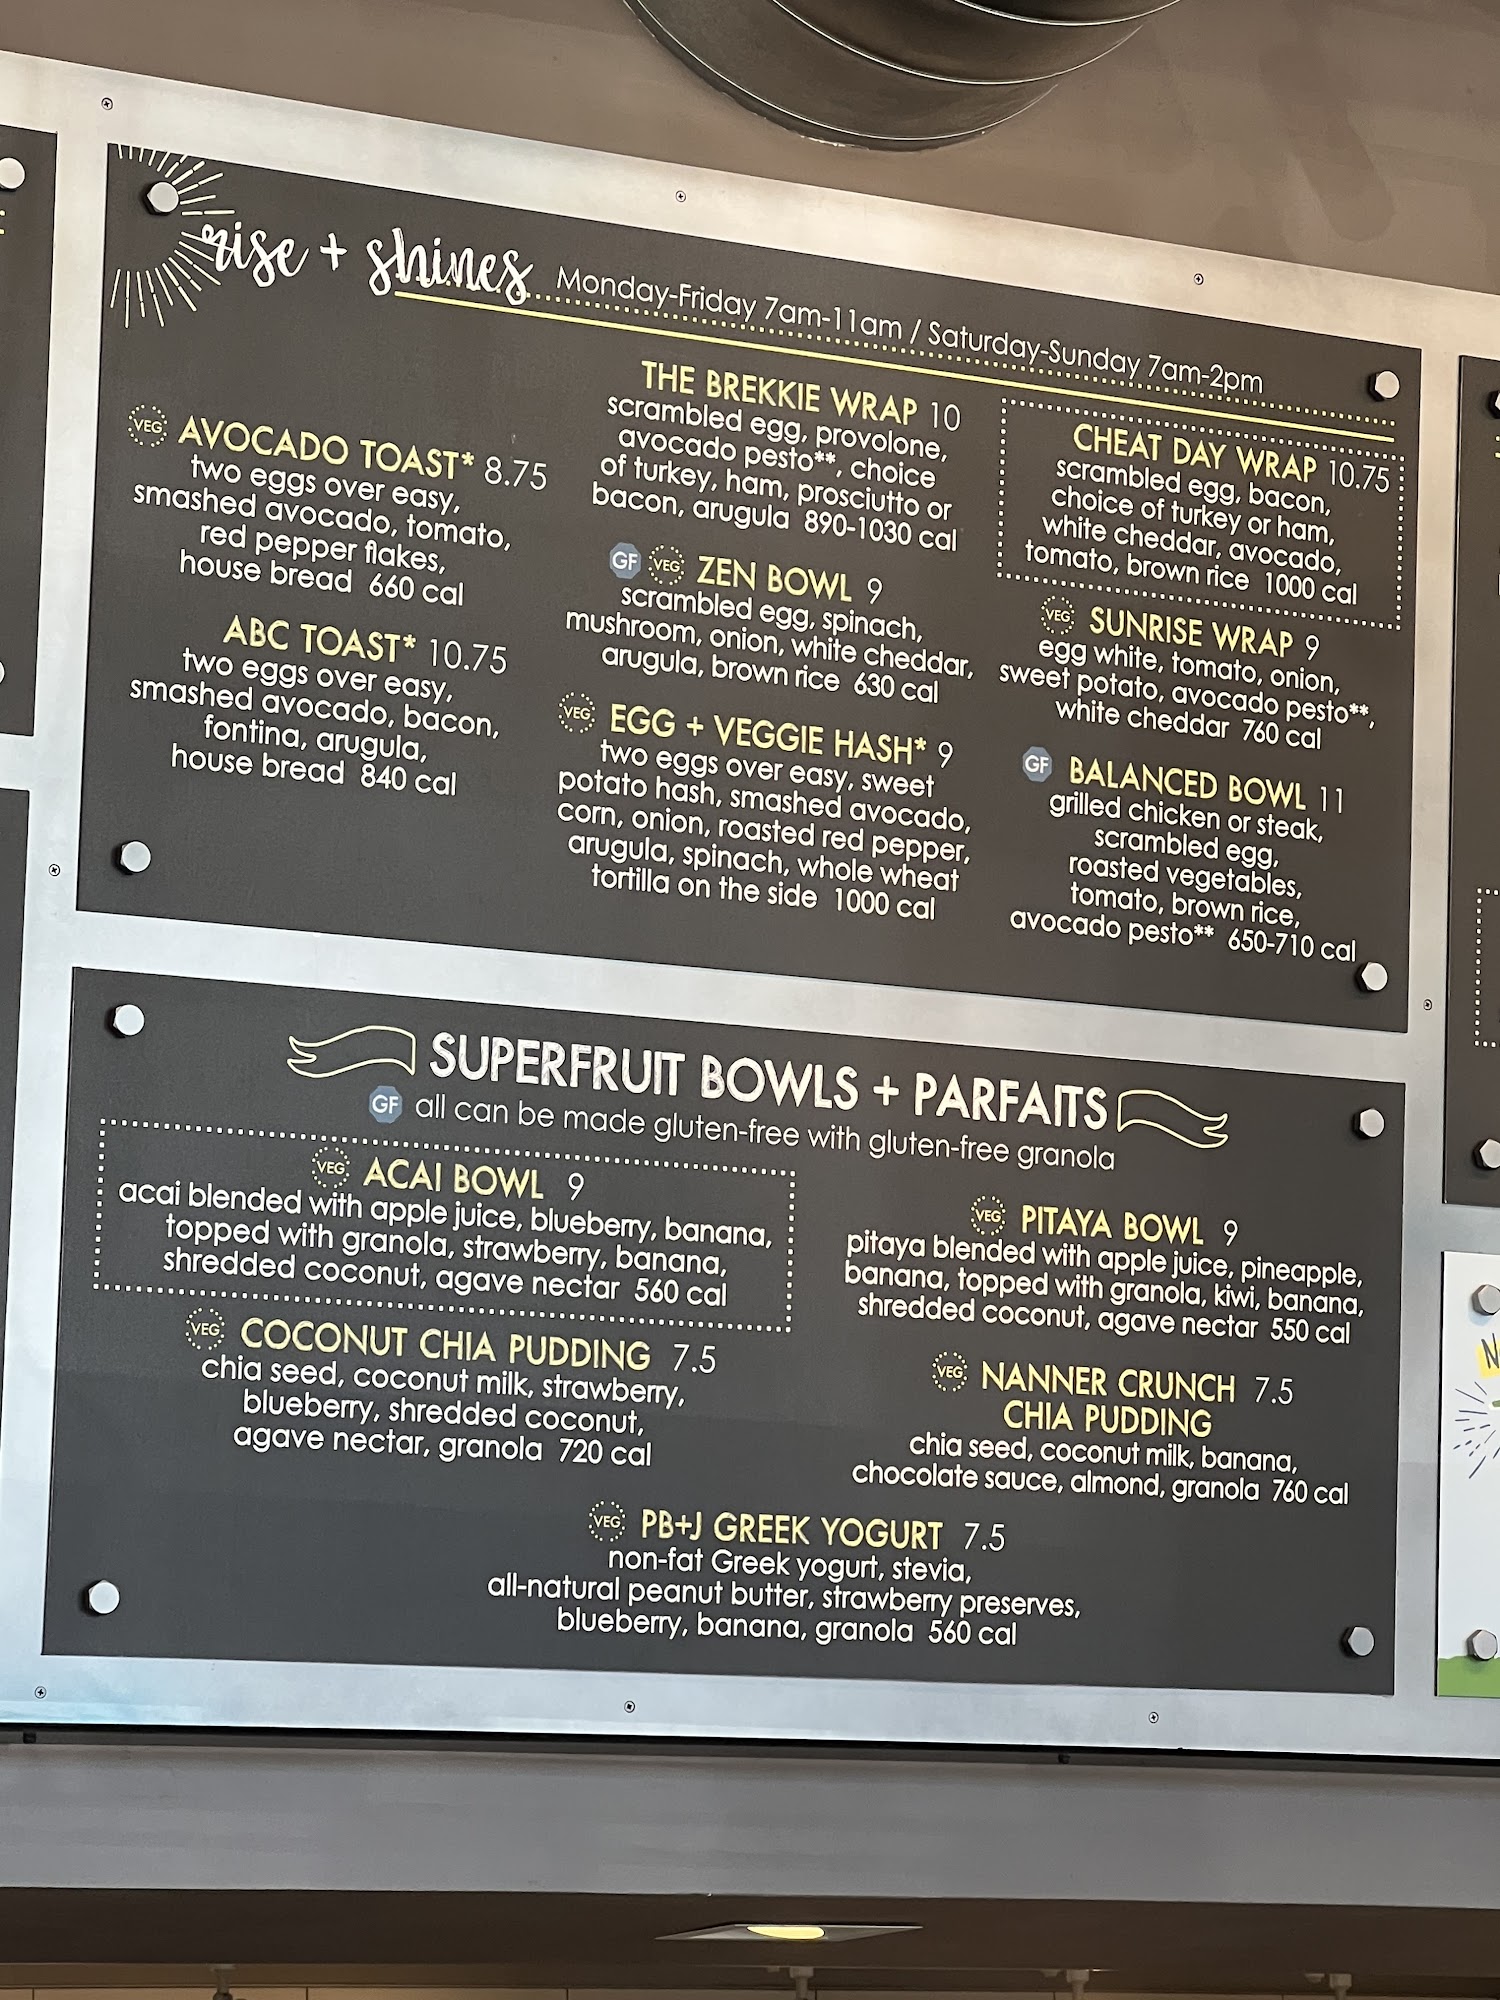 rise + shines Monday-Friday 7am-11am / Saturday-Sunday 7am-2pm
VEG AVOCADO TOAST* 8.75
two eggs over easy,
smashed avocado, tomato,
red pepper flakes,
house bread 660 cal
ABC TOAST* 10.75
two eggs over easy,
smashed avocado, bacon,
fontina, arugula,
house bread 840 cal
THE BREKKIE WRAP 10
scrambled egg, provolone,
avocado pesto**, choice
of turkey, ham, prosciutto or
bacon, arugula 890-1030 cal
GF VEG ZEN BOWL 9
scrambled egg, spinach,
mushroom, onion, white cheddar,
arugula, brown rice 630 cal
VEG EGG + VEGGIE HASH* 9
two eggs over easy, sweet
potato hash, smashed avocado,
corn, onion, roasted red pepper,
arugula, spinach, whole wheat
tortilla on the side 1000 cal
CHEAT DAY WRAP 10.75
scrambled egg, bacon,
choice of turkey or ham,
white cheddar, avocado,
tomato, brown rice 1000 cal
VEG SUNRISE WRAP 9
egg white, tomato, onion,
sweet potato, avocado pesto**,
white cheddar 760 cal
GF BALANCED BOWL 11
grilled chicken or steak,
scrambled egg,
roasted vegetables,
tomato, brown rice,
avocado pesto** 650-710 cal
SUPERFRUIT BOWLS + PARFAITS
GF all can be made gluten-free with gluten-free granola
VEG ACAI BOWL 9
acai blended with apple juice, blueberry, banana,
topped with granola, strawberry, banana,
shredded coconut, agave nectar 560 cal
VEG PITAYA BOWL 9
pitaya blended with apple juice, pineapple,
banana, topped with granola, kiwi, banana,
shredded coconut, agave nectar 550 cal
VEG COCONUT CHIA PUDDING 7.5
chia seed, coconut milk, strawberry,
blueberry, shredded coconut,
agave nectar, granola 720 cal
VEG NANNER CRUNCH 7.5
CHIA PUDDING
chia seed, coconut milk, banana,
chocolate sauce, almond, granola 760 cal
VEG PB+J GREEK YOGURT 7.5
non-fat Greek yogurt, stevia,
all-natural peanut butter, strawberry preserves,
blueberry, banana, granola 560 cal